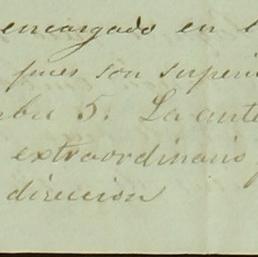 encargado en l
pues son superi
bre 5. La ante
extraordinario
direccion